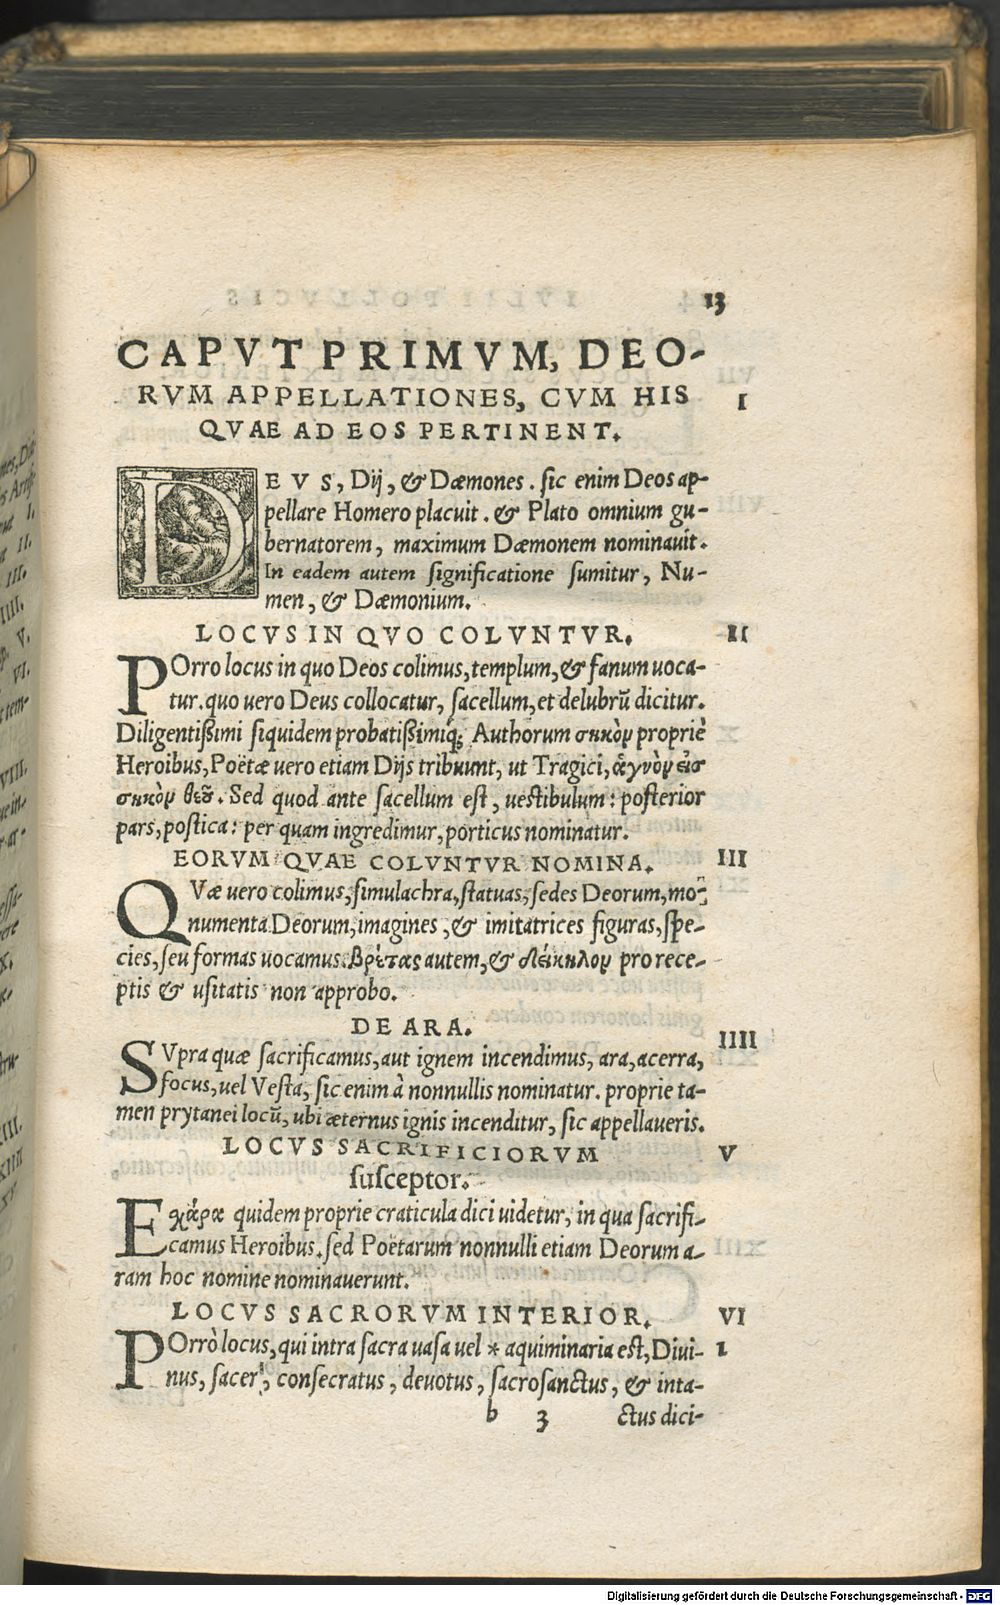 13
CAPVT PRIMVM, DEO-
RVM APPELLATIONES, CVM HIS I
QVAE AD EOS PERTINENT.
DEVS, Dij, & Dæmones. sic enim Deos ap-
pellare Homero placuit. & Plato omnium gu-
bernatorem, maximum Dæmonem nominauit.
In eadem autem significatione sumitur, Nu-
men, & Dæmonium.
LOCVS IN QVO COLVNTVR. II
POrro locus in quo Deos colimus, templum, & fanum uoca-
tur. quo uero Deus collocatur, sacellum, et delubrũ dicitur.
Diligentißimi siquidem probatißimiq́; Authorum σηκὸν propriè
Heroibus, Poëtæ uero etiam Dijs tribuunt, ut Tragici, ἁγνὸν εἰς
σηκὸν θεοῦ. Sed quod ante sacellum est, uestibulum: posterior
pars, postica: per quam ingredimur, porticus nominatur.
EORVM QVAE COLVNTVR NOMINA. III
QVæ uero colimus, simulachra, statuas, sedes Deorum, mo-
numenta Deorum, imagines, & imitatrices figuras, spe-
cies, seu formas uocamus. Βρέτας autem, & δείκηλον pro rece-
ptis & usitatis non approbo.
DE ARA. IIII
SVpra quæ sacrificamus, aut ignem incendimus, ara, acerra,
focus, uel Vesta, sic enim à nonnullis nominatur. proprie ta-
men prytanei locũ, ubi æternus ignis incenditur, sic appellaueris.
LOCVS SACRIFICIORVM V
susceptor.
Eχάρα quidem proprie craticula dici uidetur, in qua sacrifi-
camus Heroibus. sed Poëtarum nonnulli etiam Deorum a-
ram hoc nomine nominauerunt.
LOCVS SACRORVM INTERIOR. VI
POrrò locus, qui intra sacra uasa uel * aquiminaria est, Diui- 1
nus, sacer, consecratus, deuotus, sacrosanctus, & inta-
b 3 ctus dici-
Digitalisierung gefördert durch die Deutsche Forschungsgemeinschaft - DFG